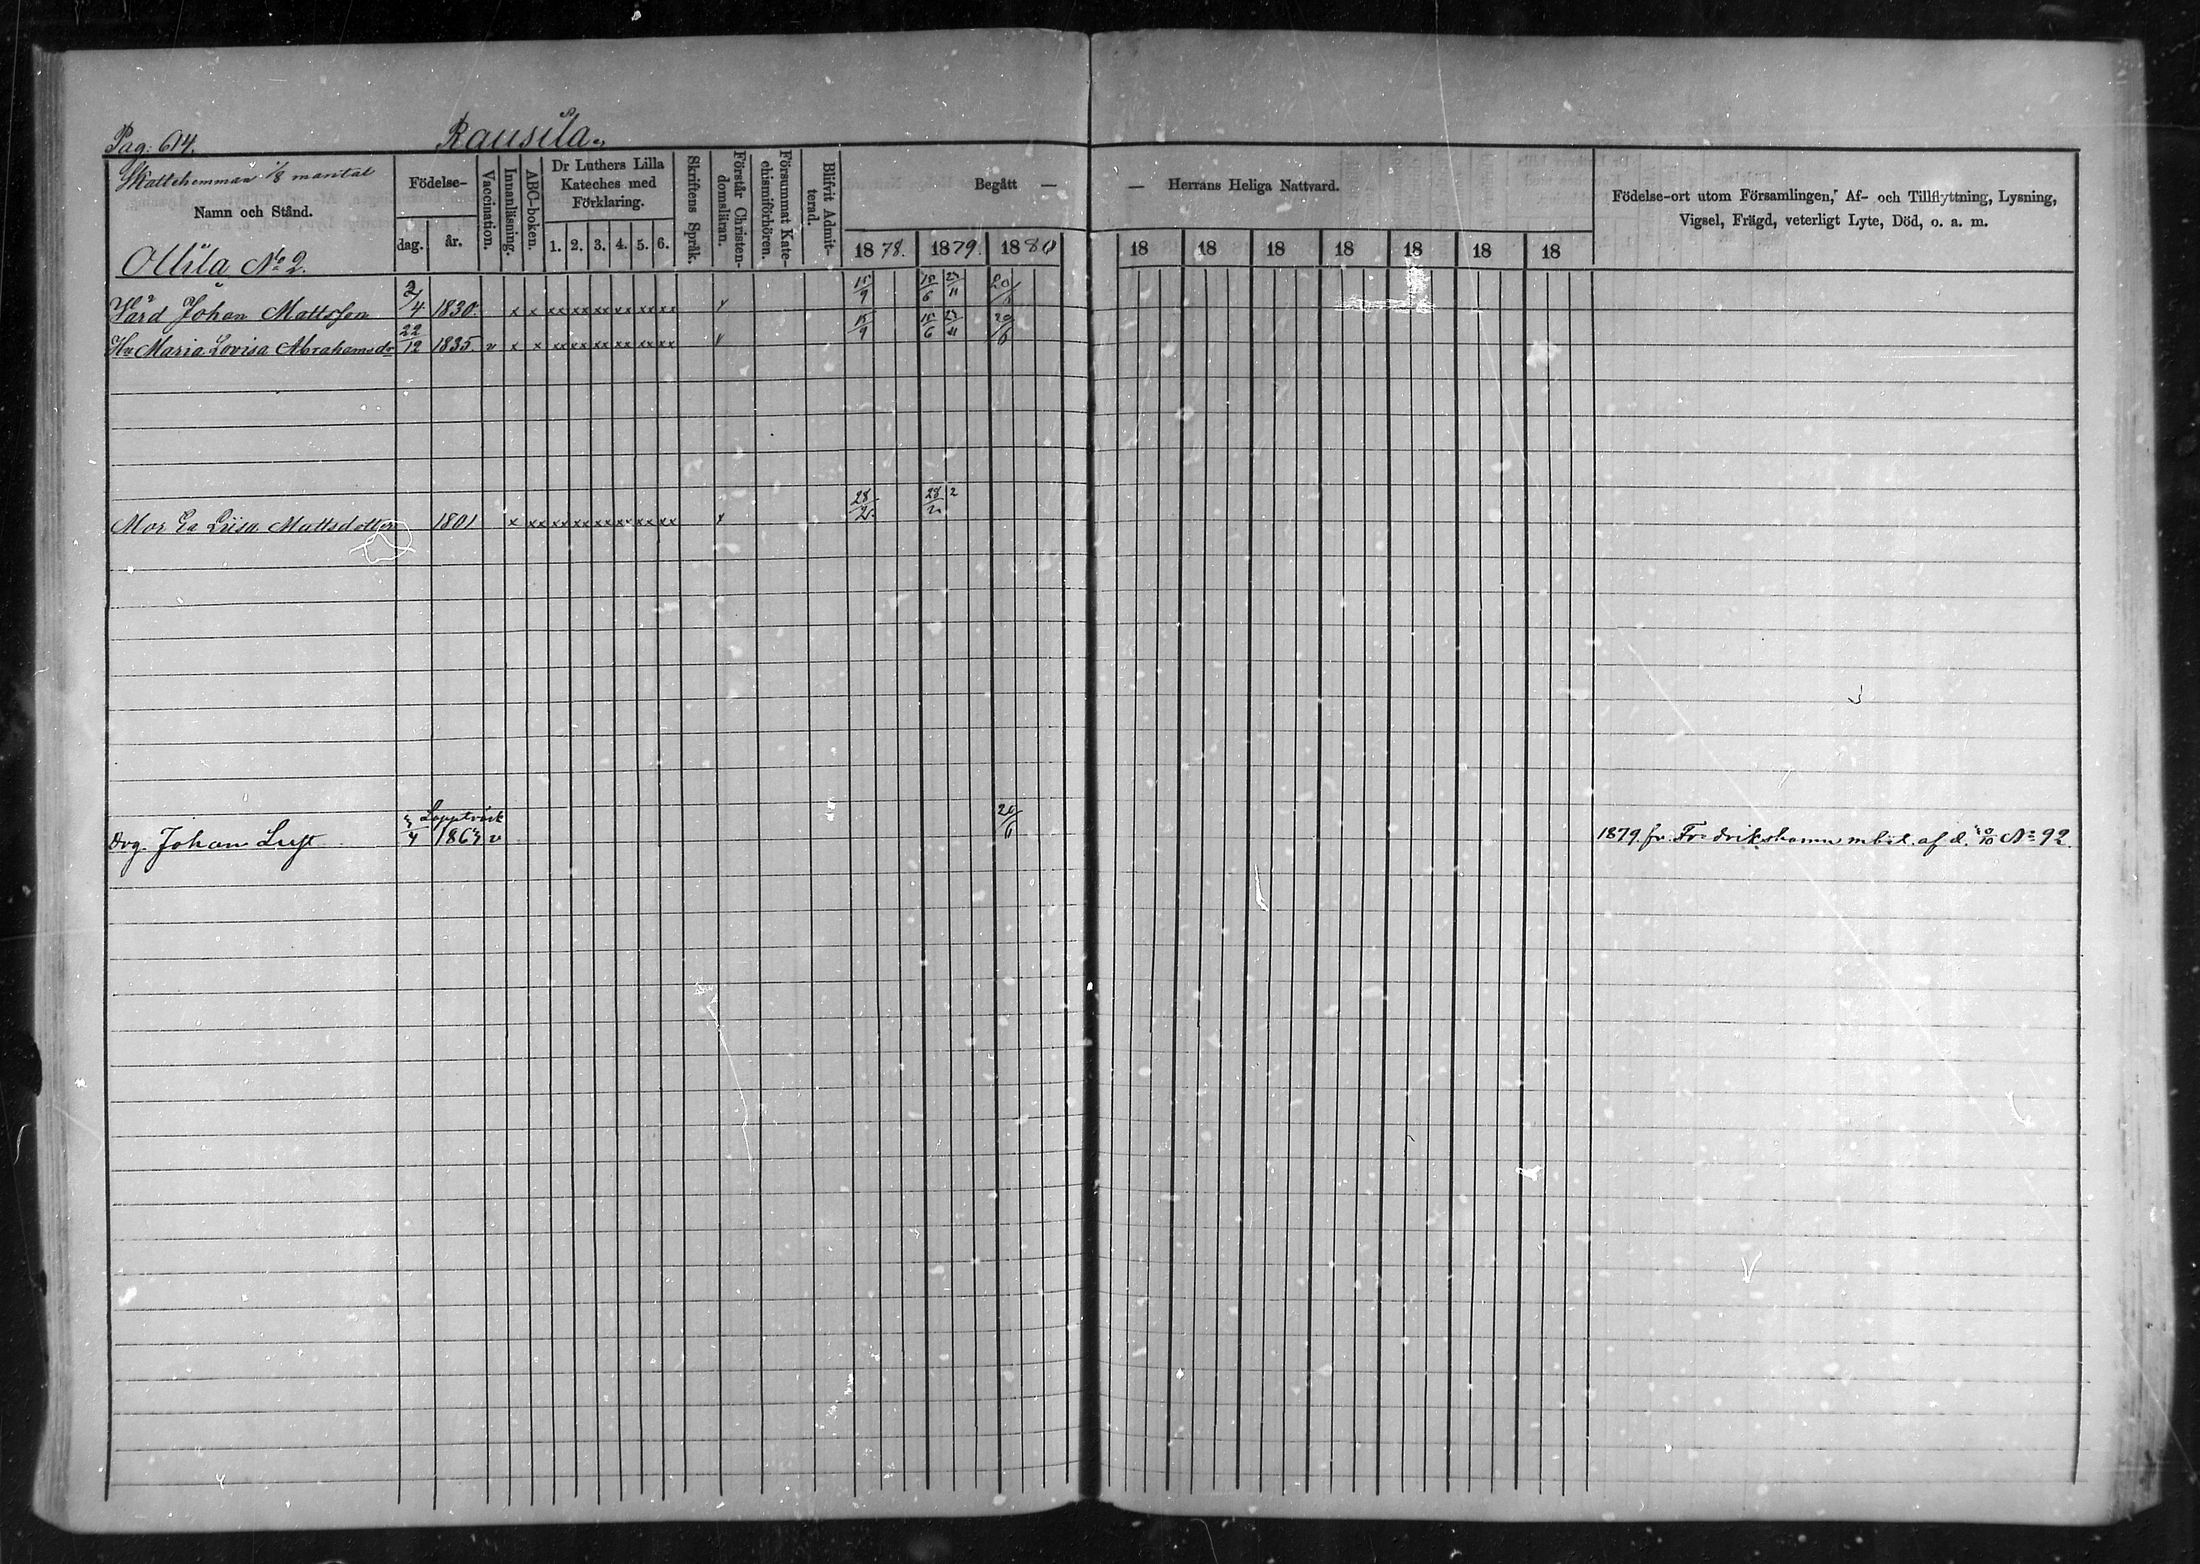 Pag: 614. Rausila
Skattehemman 1/8 mantal
Namn och Stånd.
Ollila No 2.
Födelse-
dag. år.
Vaccination.
Innanläsning.
ABC-boken.
Dr Luthers Lilla
Kateches med
Förklaring.
1. 2. 3. 4. 5. 6.
Skriftens Språk.
Förstår Christen-
domsläran.
Försummat Kate-
chismiförhören.
Blifvit Admit-
terad.
Begått — — Herrans Heliga Nattvard.
1878. 1879. 1880 18 18 18 18 18 18 18
Födelse-ort utom Församlingen, Af- och Tillflyttning, Lysning,
Vigsel, Frägd, veterligt Lyte, Död, o. a. m.
Johan Mattsson 2/4 1830. x x xx xx xx xx xx xx x 15/9 15/6 23/11 20/6
Hu Maria Lovisa Abrahamsdr 22/12 1835. v x x xx xx xx xx xx xx x 15/9 15/6 23/11 20/6
Mor Ea Liisa Mattsdotter 1801 x xx xx xx xx xx xx xx x 28/2
Drg. Johan Luft 3/4 1863 v 20/6 1879. fr. Fredrikshamn mbet. af d. No 92.